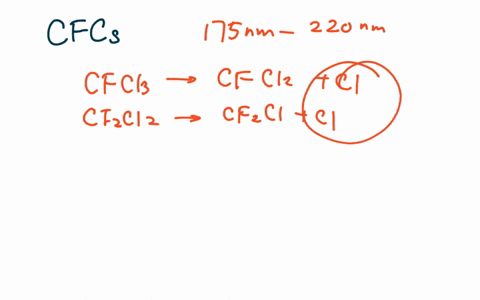 CFCs 175nm - 220nm
CFCl3 → CFCl2 + Cl
CF2Cl2 → CF2Cl + Cl